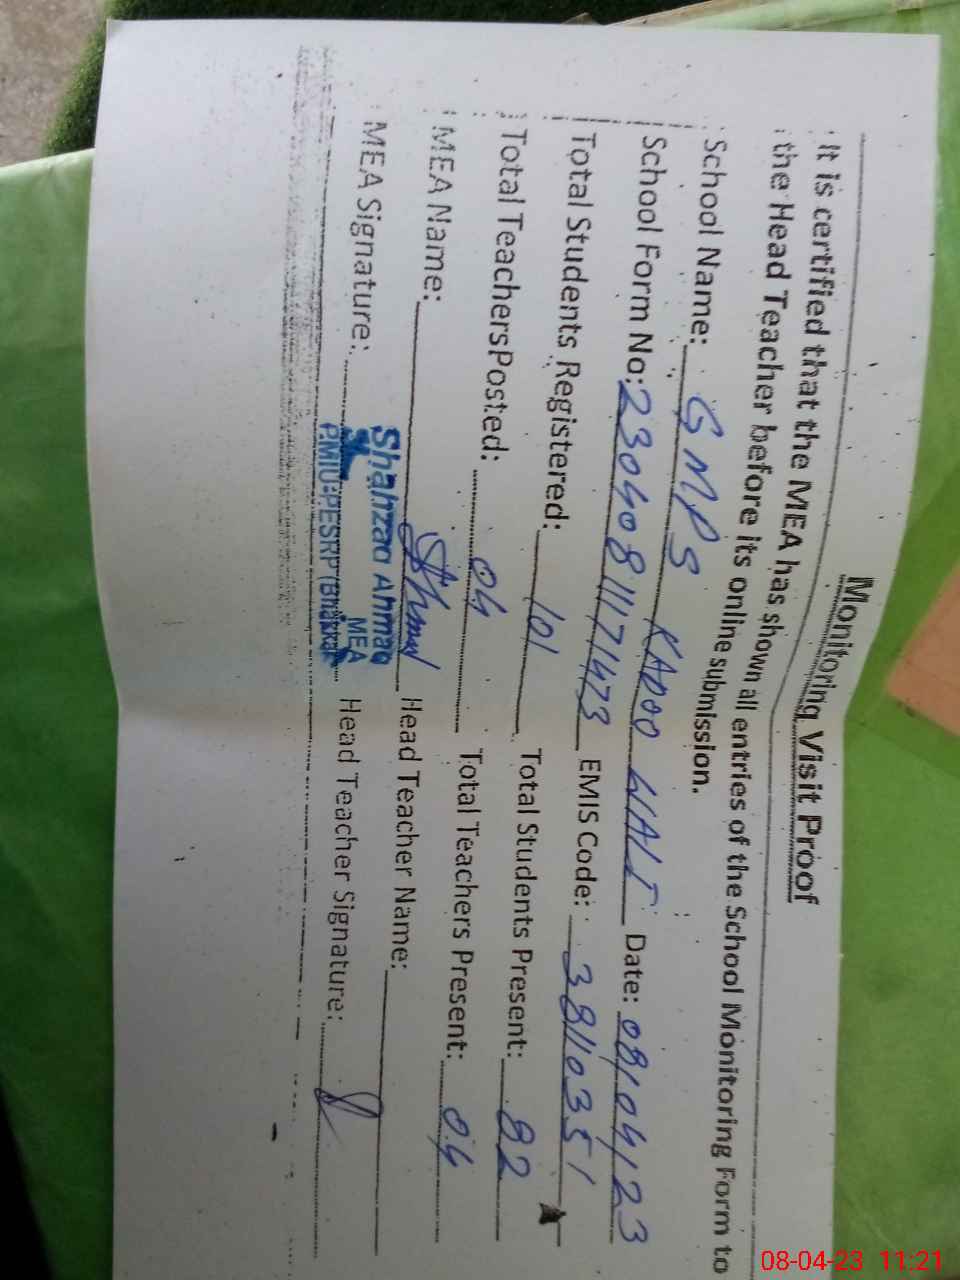 Monitoring Visit Proof
It is certified that the MEA has shown all entries of the School Monitoring Form to
the Head Teacher before its online submission.
School Name: GMPS KADOO WALI Date: 08/04/23
School Form No: 23040811171473 EMIS Code: 38110351
Total Students Registered: 101 Total Students Present: 82
Total TeachersPosted: 04 Total Teachers Present: 04
MEA Name: Head Teacher Name:
MEA Signature: Head Teacher Signature:
Shahzad Ahmad
MEA
PMIU-PESRP (Bhakkar
08-04-23 11:21